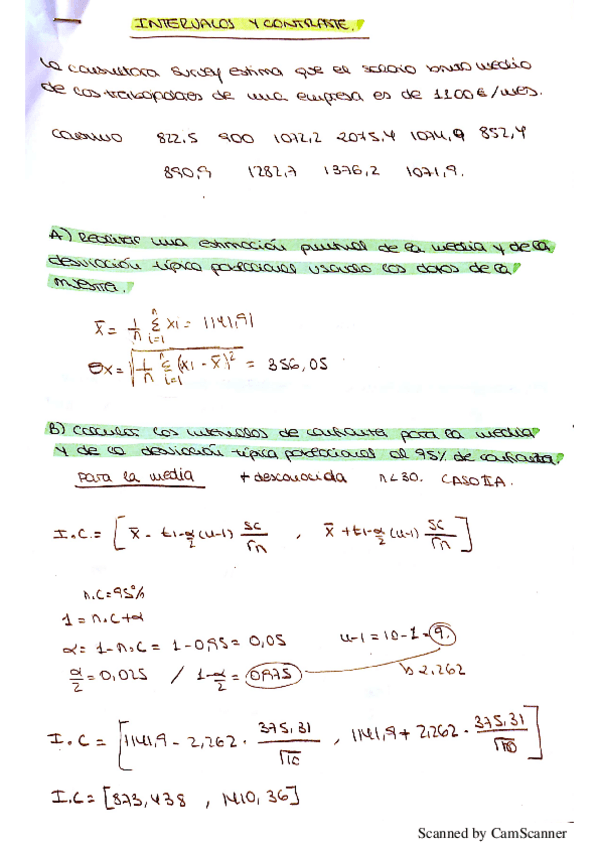 INTERVALOS Y CONTRASTE.
La consultora Survey estima que el salario bruto medio
de los trabajadores de una empresa es de 1100€/mes.
822,5 900 1072,2 2075,4 1074,9 852,4
890,9 1282,7 1376,2 1071,9.
A) Realizar una estimación puntual de la media y de la
desviación típica poblacional usando los datos de la
muestra.
x̄ = 1/n Σ(i=1, n) xi = 1141,91
σx = √(1/n Σ(i=1, n) (xi - x̄)²) = 356,05
B) Calcular los intervalos de confianza para la media
y de la desviación típica poblacional al 95% de confianza.
para la media + desconocida n<30. CASO IIA.
I.C = [x̄ - t1-α/2 (n-1) Sc/√n , x̄ + t1-α/2 (n-1) Sc/√n]
n.C = 95%
1 = n.C + α
α = 1 - n.C = 1 - 0,95 = 0,05 n-1 = 10-1 = 9.
α/2 = 0,025 / 1-α/2 = 0,975 ↳ 2,262
I.C = [1141,9 - 2,262 · 375,31/√10 , 1141,9 + 2,262 · 375,31/√10]
I.C = [873,438 , 1410,36]
Scanned by CamScanner